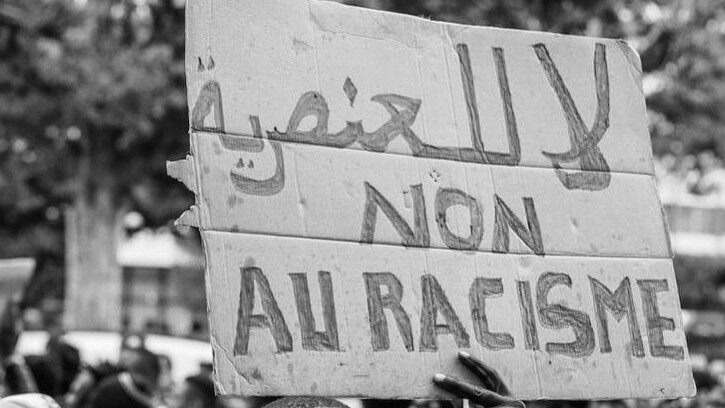 لا للعنصرية
NON
AU RACISME